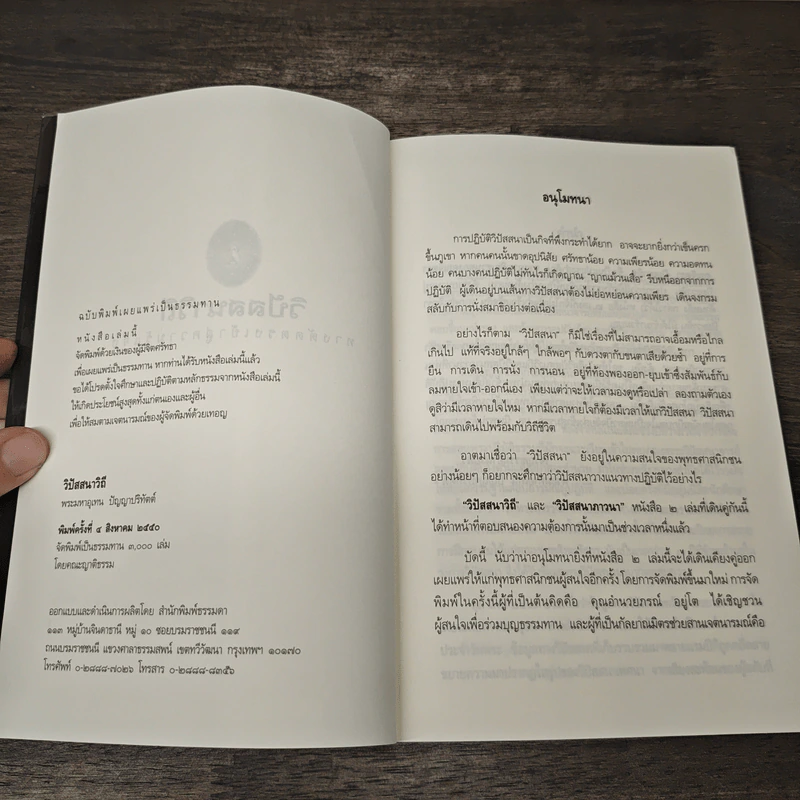 ฉบับพิมพ์เผยแพร่เป็นธรรมทาน
หนังสือเล่มนี้
จัดพิมพ์ด้วยเงินของผู้มีจิตศรัทธา
เพื่อเผยแพร่เป็นธรรมทาน หากท่านได้รับหนังสือเล่มนี้แล้ว
ขอได้โปรดตั้งใจศึกษาและปฏิบัติตามหลักธรรมจากหนังสือเล่มนี้
ให้เกิดประโยชน์สูงสุดทั้งแก่ตนเองและผู้อื่น
เพื่อให้สมตามเจตนารมณ์ของผู้จัดพิมพ์ด้วยเทอญ
วิปัสสนาวิถี
พระมหาอุเทน ปัญญาปริทัตต์
พิมพ์ครั้งที่ ๔ สิงหาคม ๒๕๕๐
จัดพิมพ์เป็นธรรมทาน ๓,๐๐๐ เล่ม
โดยคณะญาติธรรม
ออกแบบและดำเนินการผลิตโดย สำนักพิมพ์ธรรมดา
๑๑๓ หมู่บ้านจินดาธานี หมู่ ๑๐ ซอยบรมราชชนนี ๑๑๙
ถนนบรมราชชนนี แขวงศาลาธรรมสพน์ เขตทวีวัฒนา กรุงเทพฯ ๑๐๑๗๐
โทรศัพท์ ๐-๒๘๘๘-๗๐๒๖ โทรสาร ๐-๒๘๘๘-๘๓๕๖
อนุโมทนา
การปฏิบัติวิปัสสนาเป็นกิจที่พึงกระทำได้ยาก อาจจะยากยิ่งกว่าเข็นครก
ขึ้นภูเขา หากคนคนนั้นขาดอุปนิสัย ศรัทธาน้อย ความเพียรน้อย ความอดทน
น้อย คนบางคนปฏิบัติไม่ทันไรก็เกิดญาณ "ญาณม้วนเสื่อ" รีบหนีออกจากการ
ปฏิบัติ ผู้เดินอยู่บนเส้นทางวิปัสสนาต้องไม่ย่อหย่อนความเพียร เดินจงกรม
สลับกับการนั่งสมาธิอย่างต่อเนื่อง
อย่างไรก็ตาม "วิปัสสนา" ก็มิใช่เรื่องที่ไม่สามารถอาจเอื้อมหรือไกล
เกินไป แท้ที่จริงอยู่ใกล้ๆ ใกล้พอๆ กับดวงตากับขนตาเสียด้วยซ้ำ อยู่ที่การ
ยืน การเดิน การนั่ง การนอน อยู่ที่ท้องพองออก-ยุบเข้าซึ่งสัมพันธ์กับ
ลมหายใจเข้า-ออกนี่เอง เพียงแต่ว่าจะให้เวลามองดูหรือเปล่า ลองถามตัวเอง
ดูสิว่ามีเวลาหายใจไหม หากมีเวลาหายใจก็ต้องมีเวลาให้แก่วิปัสสนา วิปัสสนา
สามารถเดินไปพร้อมกับวิถีชีวิต
อาตมาเชื่อว่า "วิปัสสนา" ยังอยู่ในความสนใจของพุทธศาสนิกชน
อย่างน้อยๆ ก็อยากจะศึกษาว่าวิปัสสนาวางแนวทางปฏิบัติไว้อย่างไร
"วิปัสสนาวิถี" และ "วิปัสสนาภาวนา" หนังสือ ๒ เล่มที่เดินคู่กันนี้
ได้ทำหน้าที่ตอบสนองความต้องการนั้นมาเป็นช่วงเวลาหนึ่งแล้ว
บัดนี้ นับว่าน่าอนุโมทนายิ่งที่หนังสือ ๒ เล่มนี้จะได้เดินเคียงคู่ออก
เผยแพร่ให้แก่พุทธศาสนิกชนผู้สนใจอีกครั้ง โดยการจัดพิมพ์ขึ้นมาใหม่ การจัด
พิมพ์ในครั้งนี้ผู้ที่เป็นต้นคิดคือ คุณอำนวยภรณ์ อยู่โต ได้เชิญชวน
ผู้สนใจเพื่อร่วมบุญธรรมทาน และผู้ที่เป็นกัลยาณมิตรช่วยสานเจตนารมณ์คือ